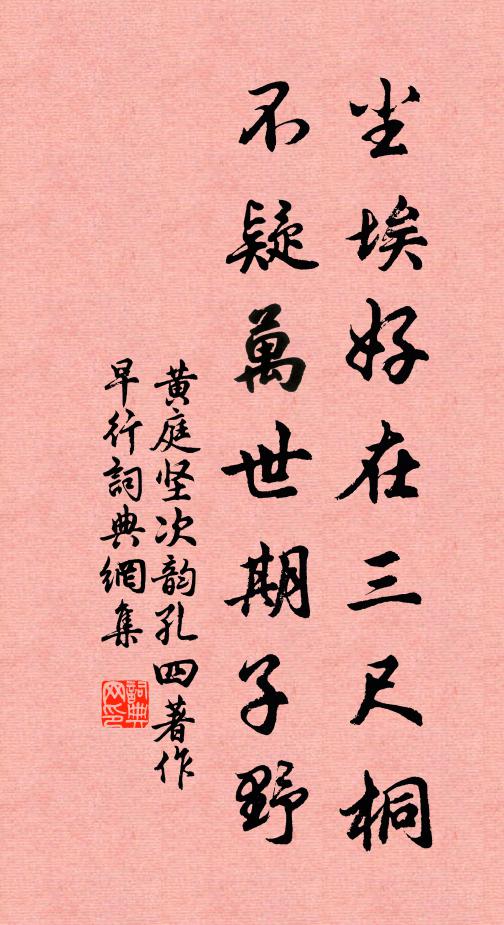 尘埃好在三尺桐
不疑萬世期子野
黄庭坚次韵孔四著作
早行詞典網集
詞典网印